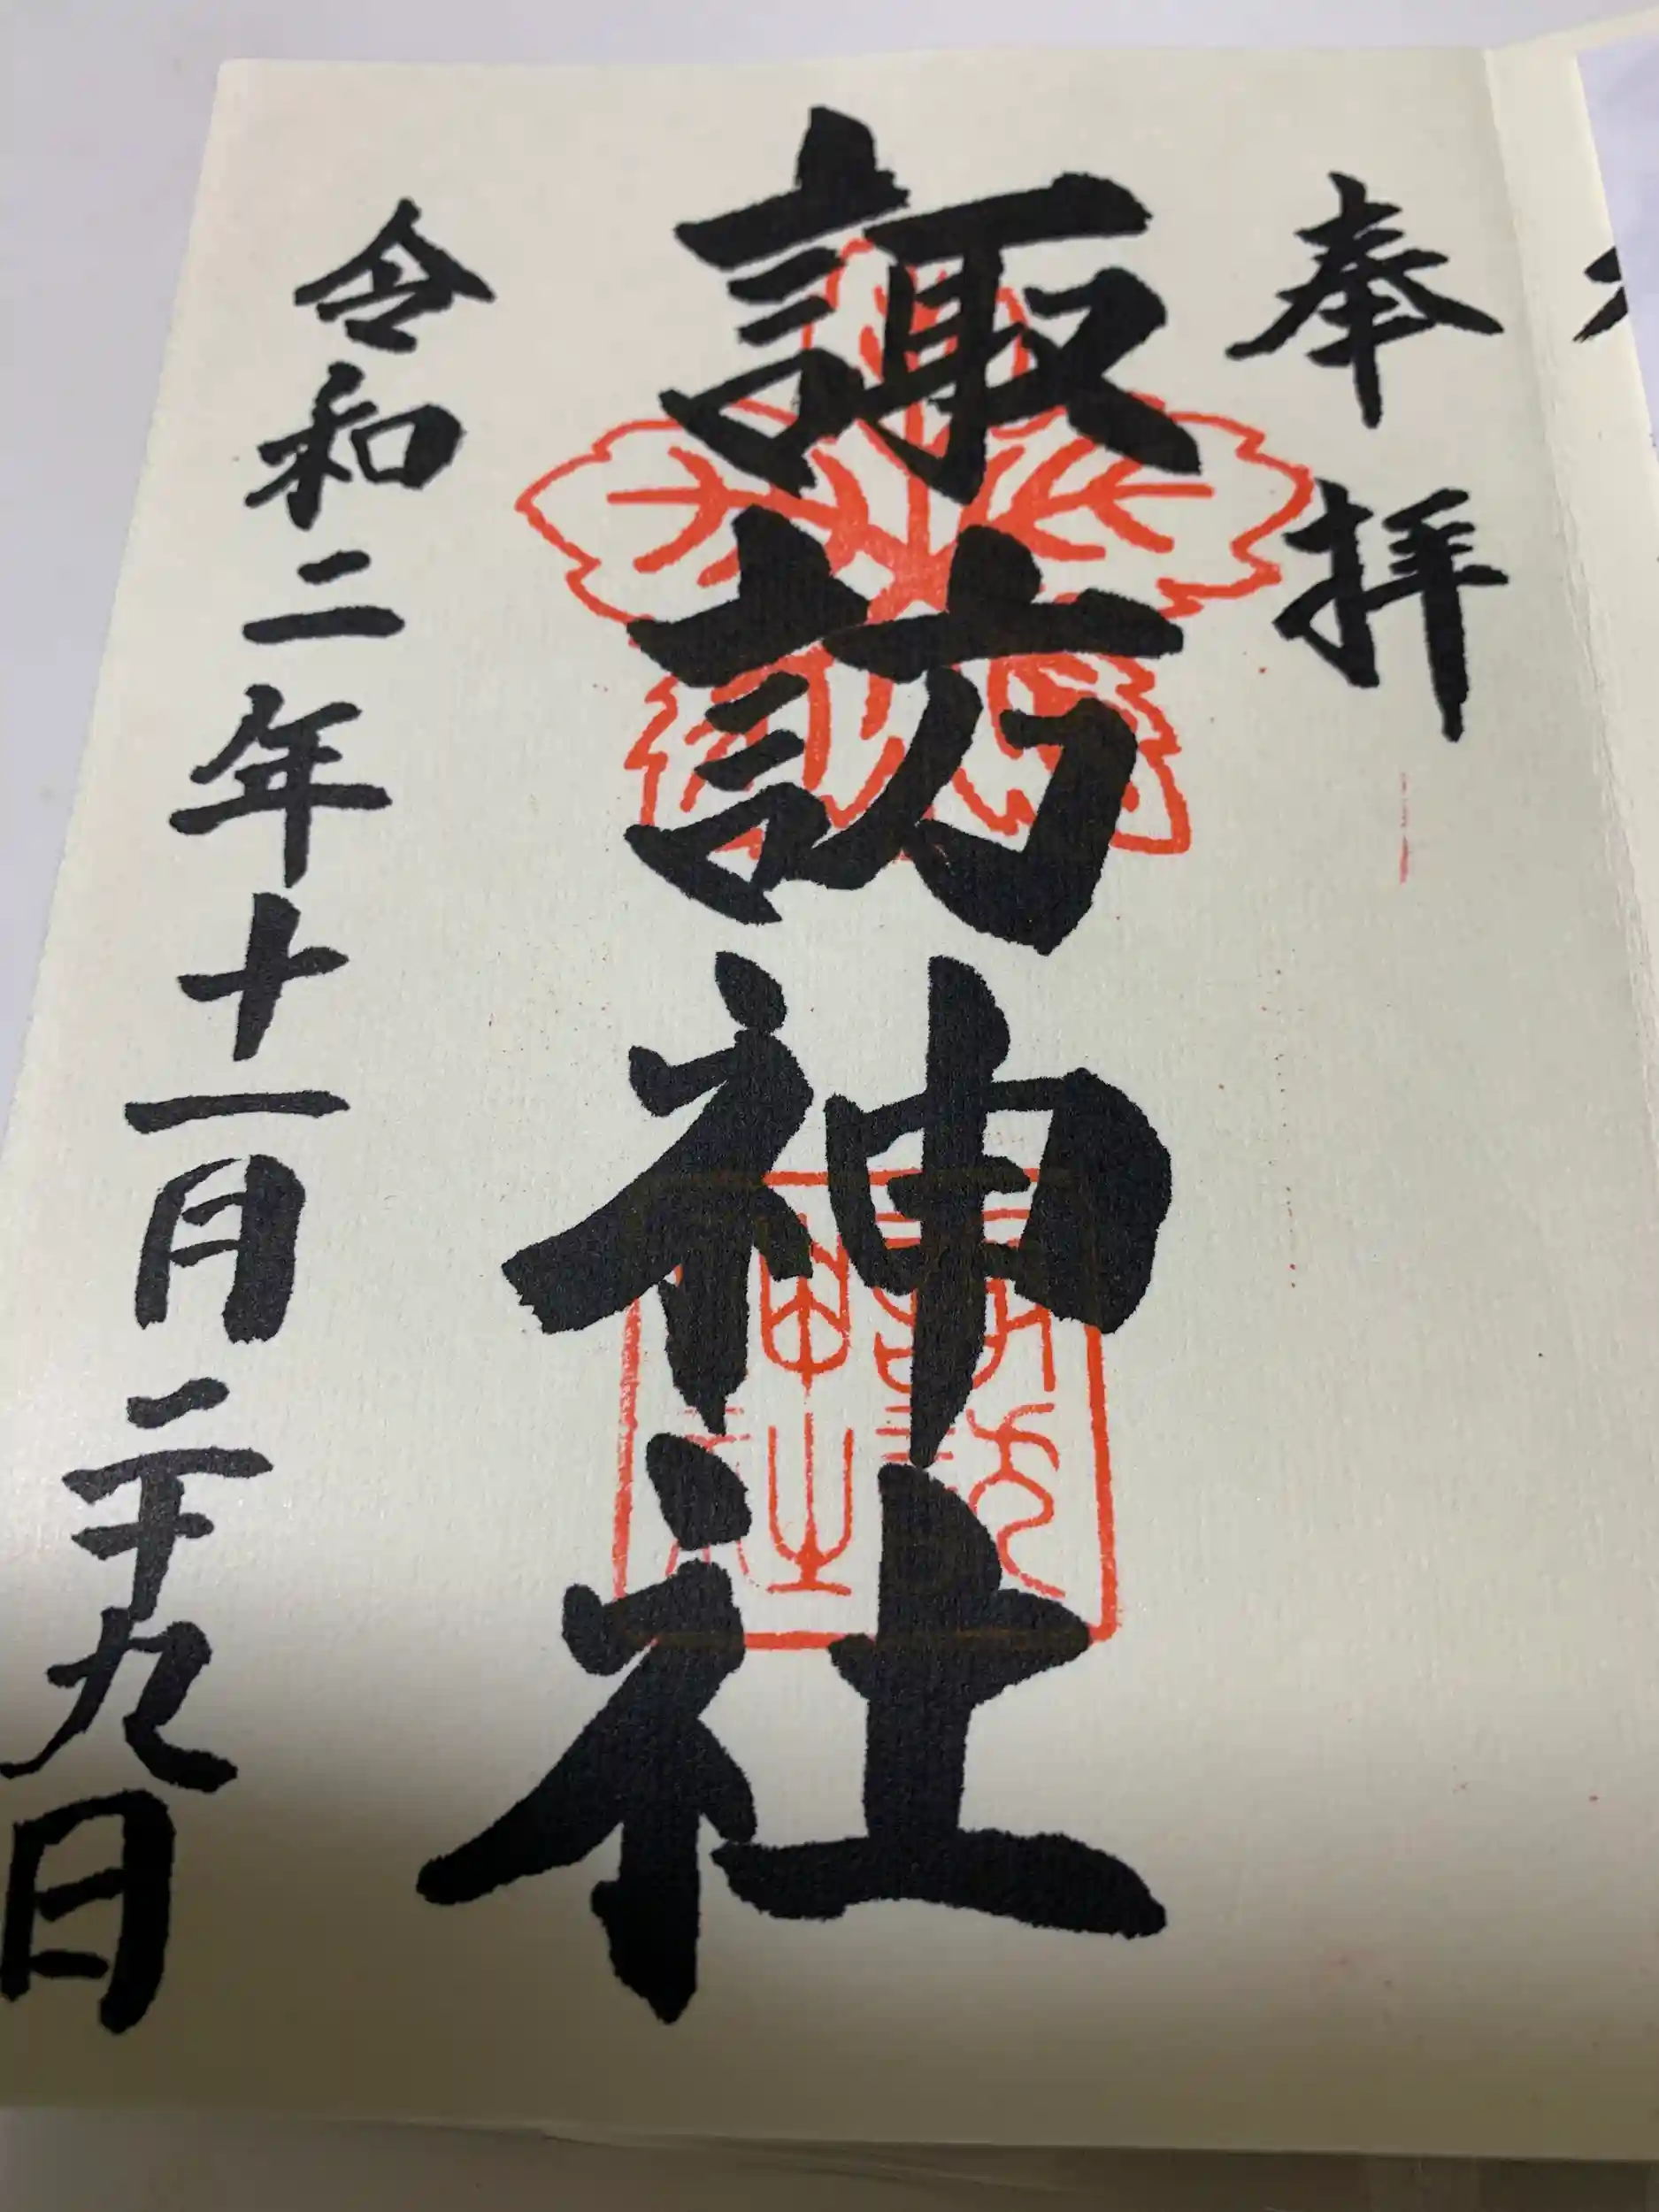 奉拝
諏訪神社
令和二年十一月二十九日